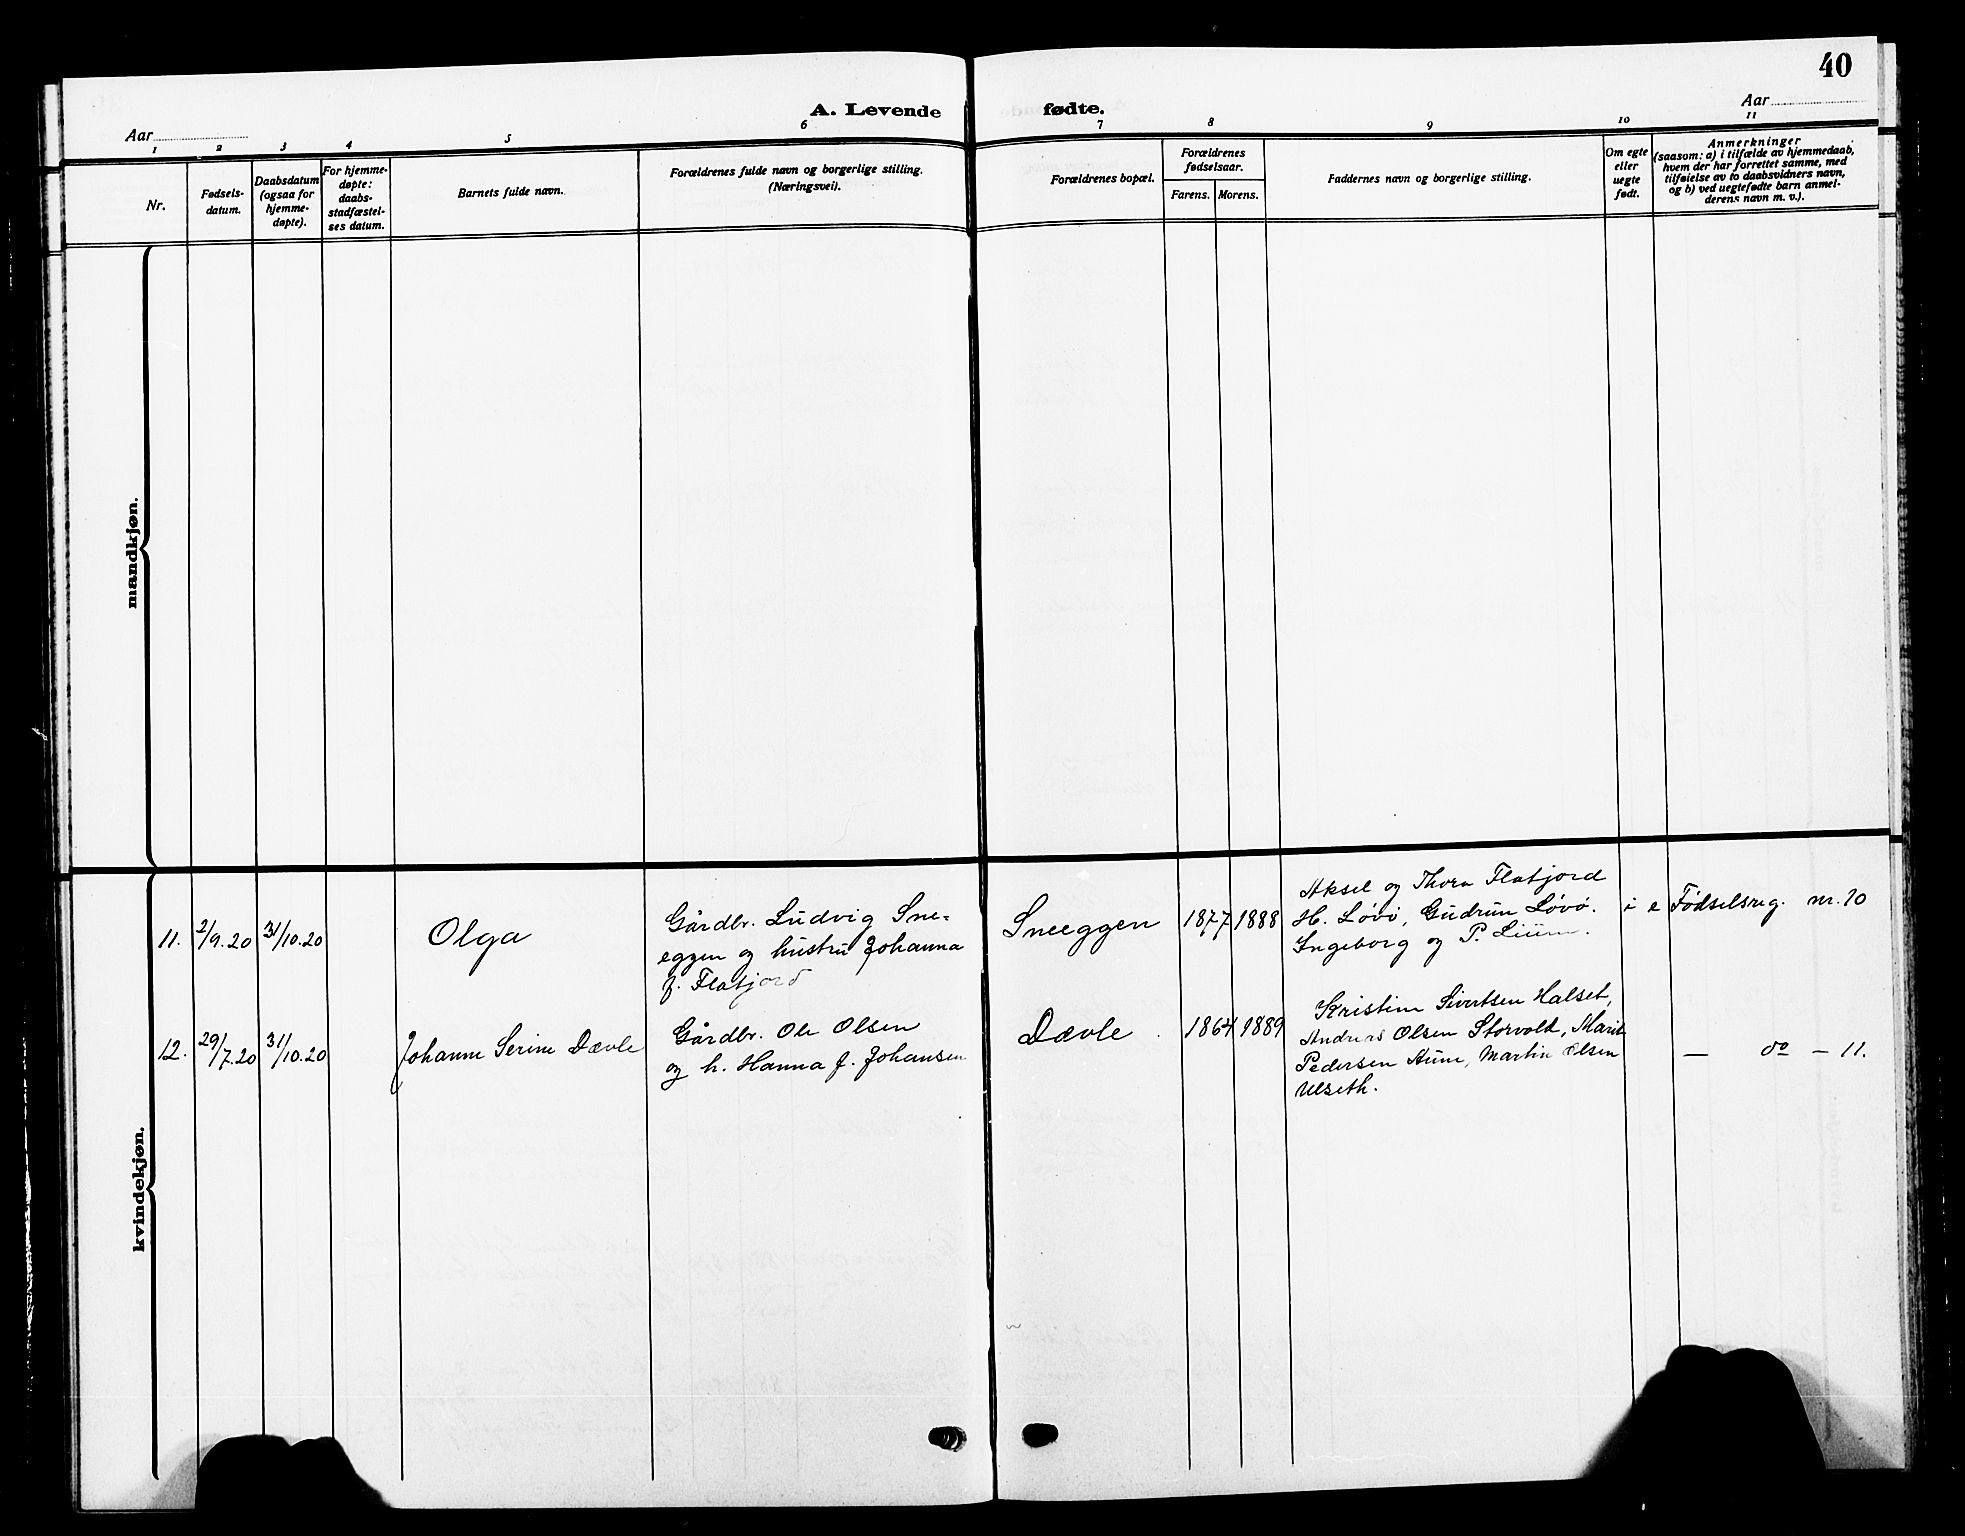 40
A. Levende fødte.
Aar
Aar
1 2 3 4 5 6 7 8 9 10 11
Nr.
Fødsels-
datum.
Daabsdatum
(ogsaa for
hjemme-
døpte).
For hjemme-
døpte:
daabs-
stadfæstel-
ses datum.
Barnets fulde navn.
Forældrenes fulde navn og borgerlige stilling.
(Næringsvei).
Forældrenes bopæl.
Forældrenes
fødselsaar.
Farens. Morens.
Faddernes navn og borgerlige stilling.
Om egte
eller
uegte
født.
Anmerkninger
(saasom: a) i tilfælde av hjemmedaab,
hvem der har forrettet samme, med
tilføielse av to daabsvidners navn,
og b) ved uegtefødte barn anmel-
derens navn m. v.).
mandkjøn.
kvindekjøn.
11.
2/9.20
31/10.20
Olga
Gårdbr. Ludvig Sne-
eggen og hustru Johanna
f. Flatjord
Sneeggen
1877
1888
Aksel og Thora Flatjord
H. Løvø, Gudrun Løvø.
Ingeborg og P. Lium.
i e
Fødselsreg. nr. 10
12.
29/7.20
31/10.20
Johanne Serine Dævle
Gårdbr. Ole Olsen
og h. Hanna f. Johansen
Dævle
1864
1889
Kristine Sivertsen Halset,
Andreas Olsen Storvold, Marit
Pedersen Aune, Martin Olsen
Ulseth.
— do — 11.